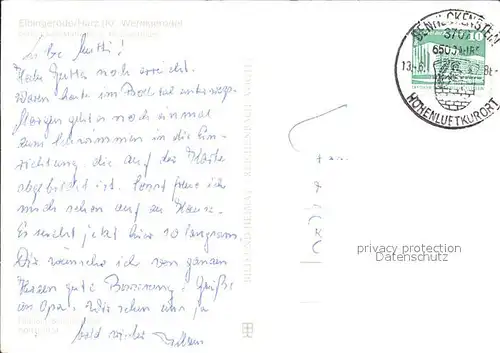 Elbingerode/Harz (Kr. Wernigerode)
Liebe Mutti!
Habe Jutta noch erreicht.
Waren heute im Bodetal unterwegs.
Morgen geht es noch einmal
zum Schwimmen in die Ein-
richtung, die auf der Karte
abgebildet ist. Sonst freue ich
mich schon auf zu Hause.
Es reicht jetzt hier so langsam.
Dir wünsche ich von ganzem
Herzen gute Besserung. Grüße
an Opa. Wir sehen uns ja
bald wieder
BENNECKENSTEIN
3707
650 JAHRE
13.-6.
HÖHENLUFTKURORT
10
BILD UND HEIMAT REICHENBACH
privacy protection
Datenschutz